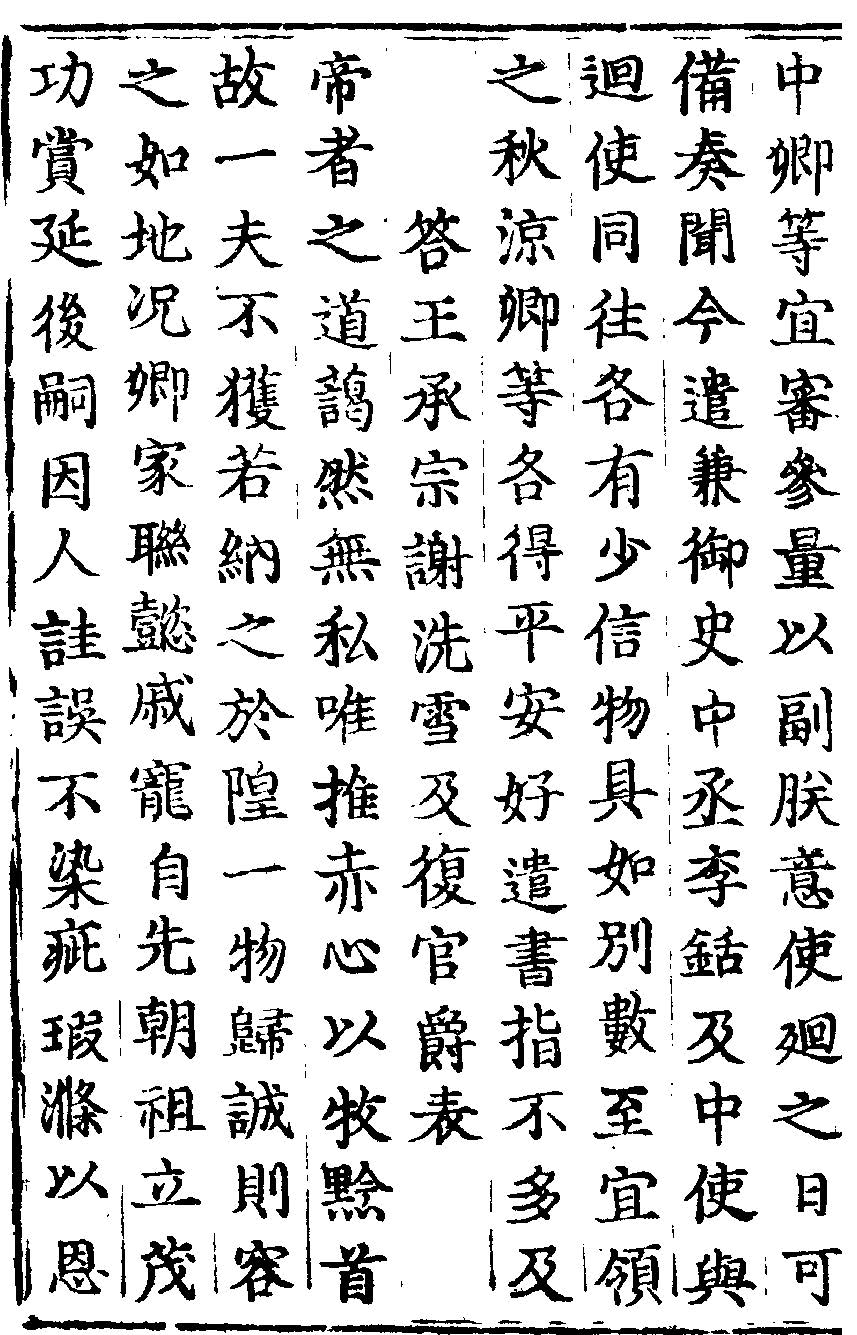 中卿等宜審參量以副朕意使廻之日可
備奏聞今遣兼御史中丞李銛及中使與
迴使同往各有少信物具如別數至宜領
之秋涼卿等各得平安好遣書指不多及
答王承宗謝洗雪及復官爵表
帝者之道藹然無私唯推赤心以牧黔首
故一夫不獲若納之於隍一物歸誠則容
之如地况卿家聯懿戚寵自先朝祖立茂
功賞延後嗣因人詿誤不染疵瑕滌以恩